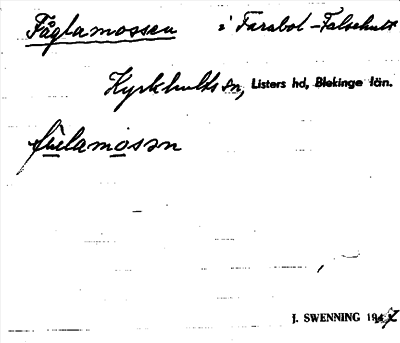 Fåglamossen i Farabol-Falsehult
Kyrkhults sn, Listers hd, Blekinge län.
fúelamosən
J. SWENNING 1947